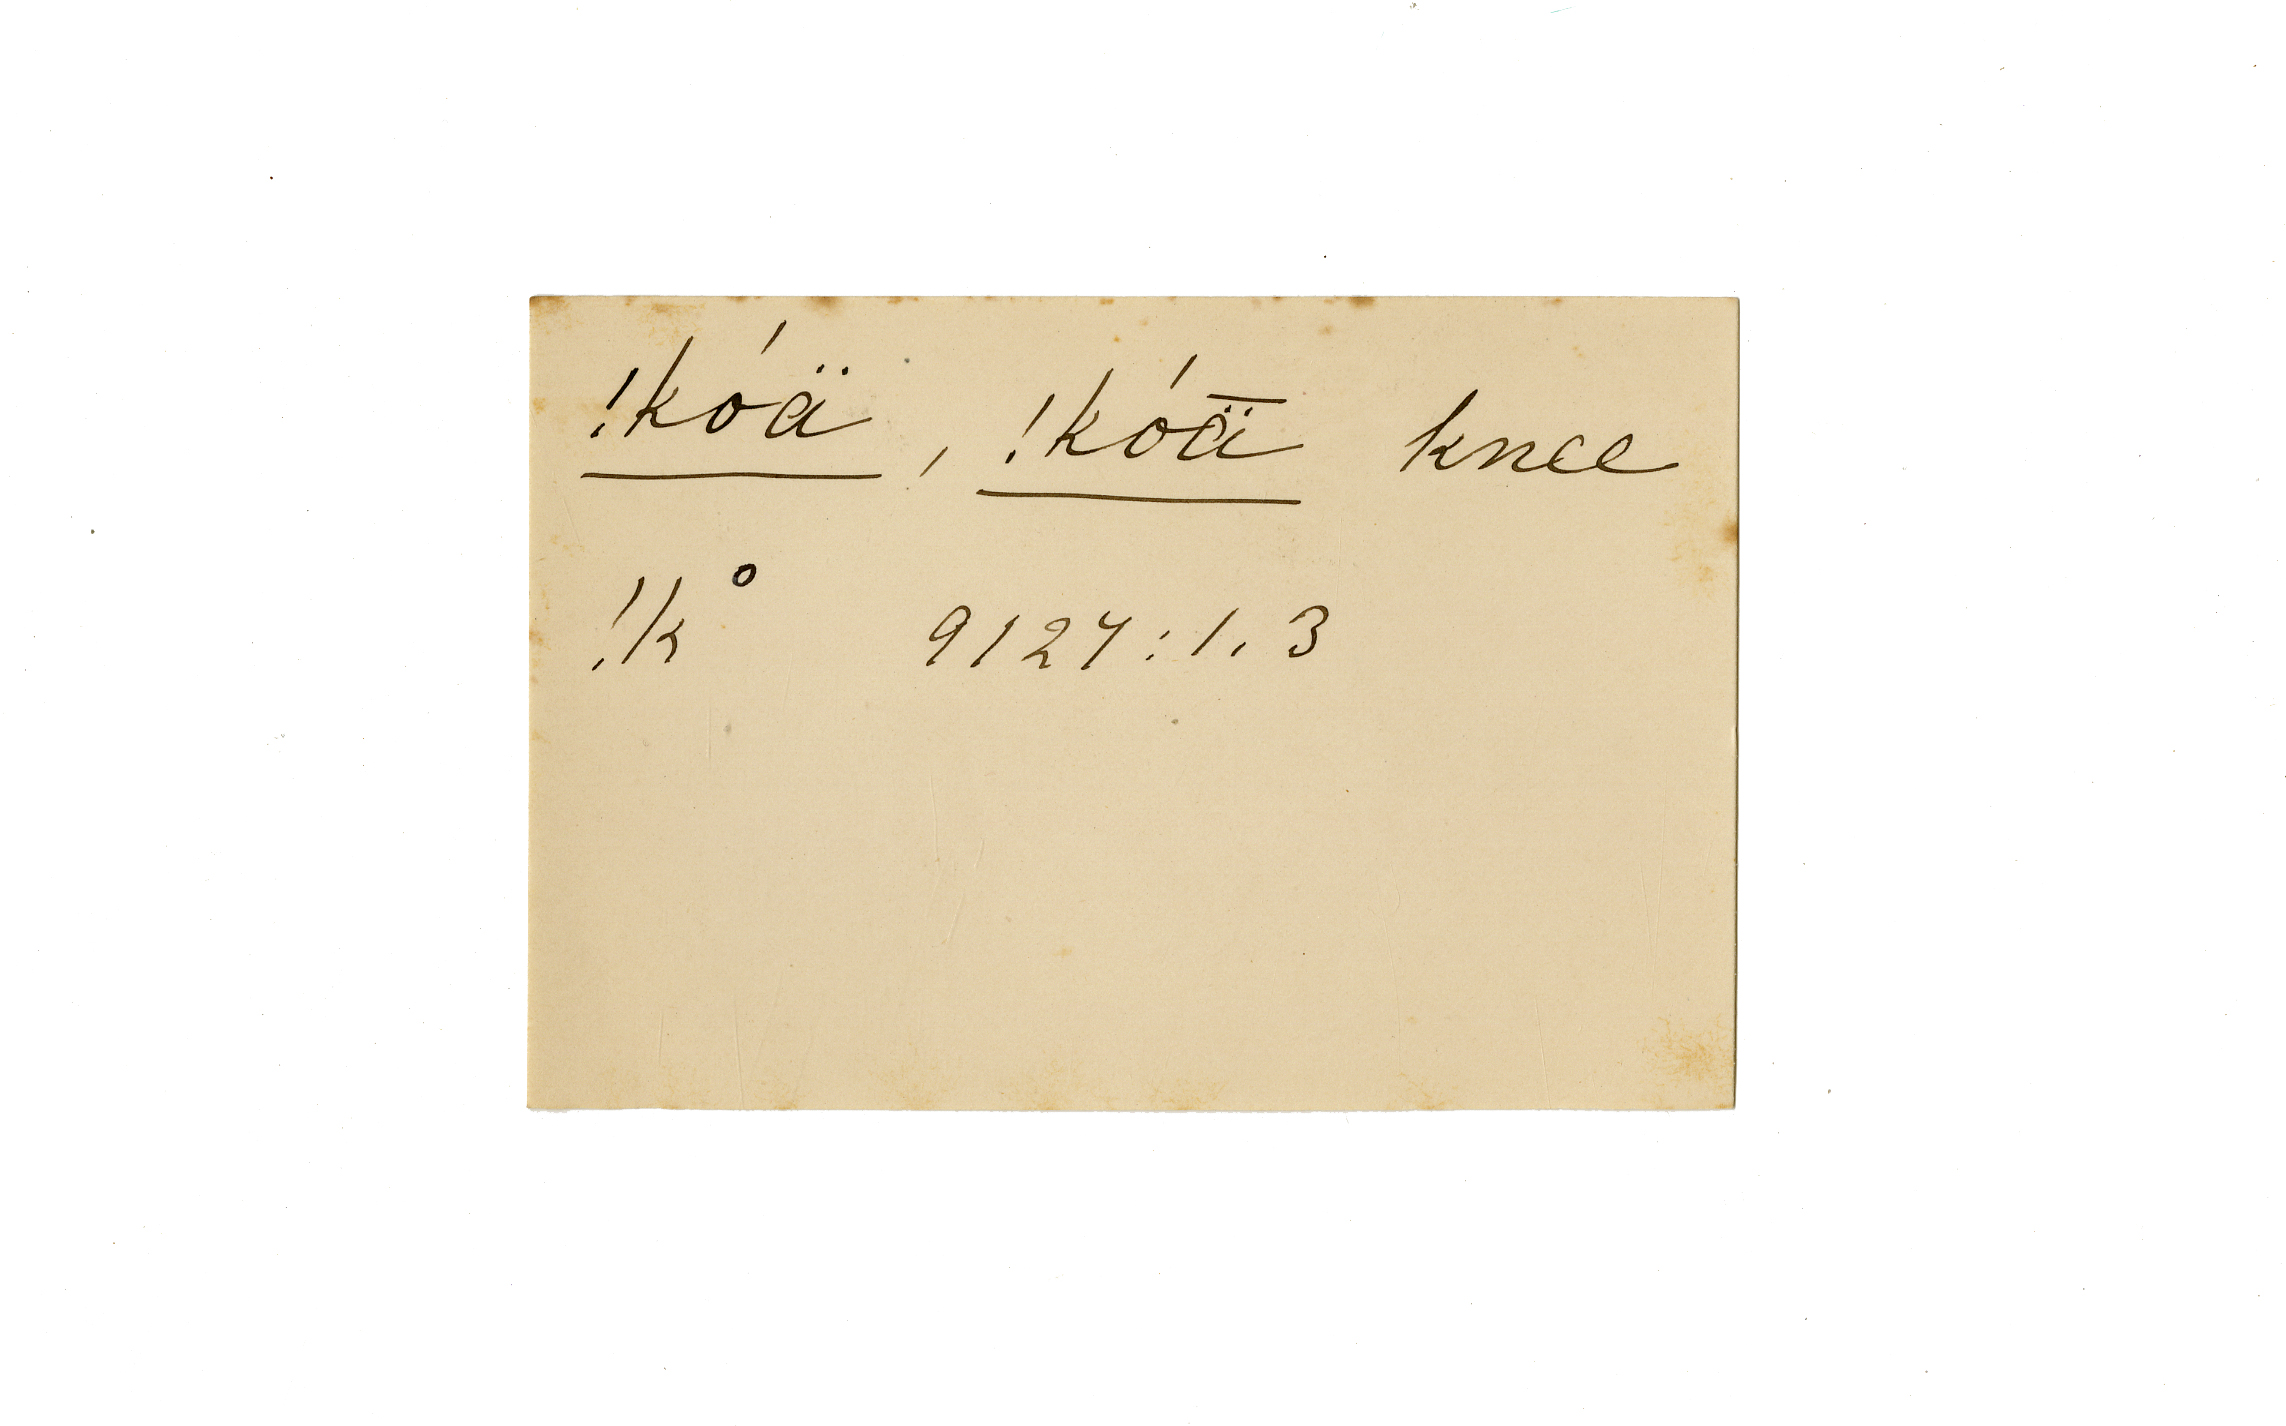 !kóä, !kóǟ knee
!k° 9127:1.3